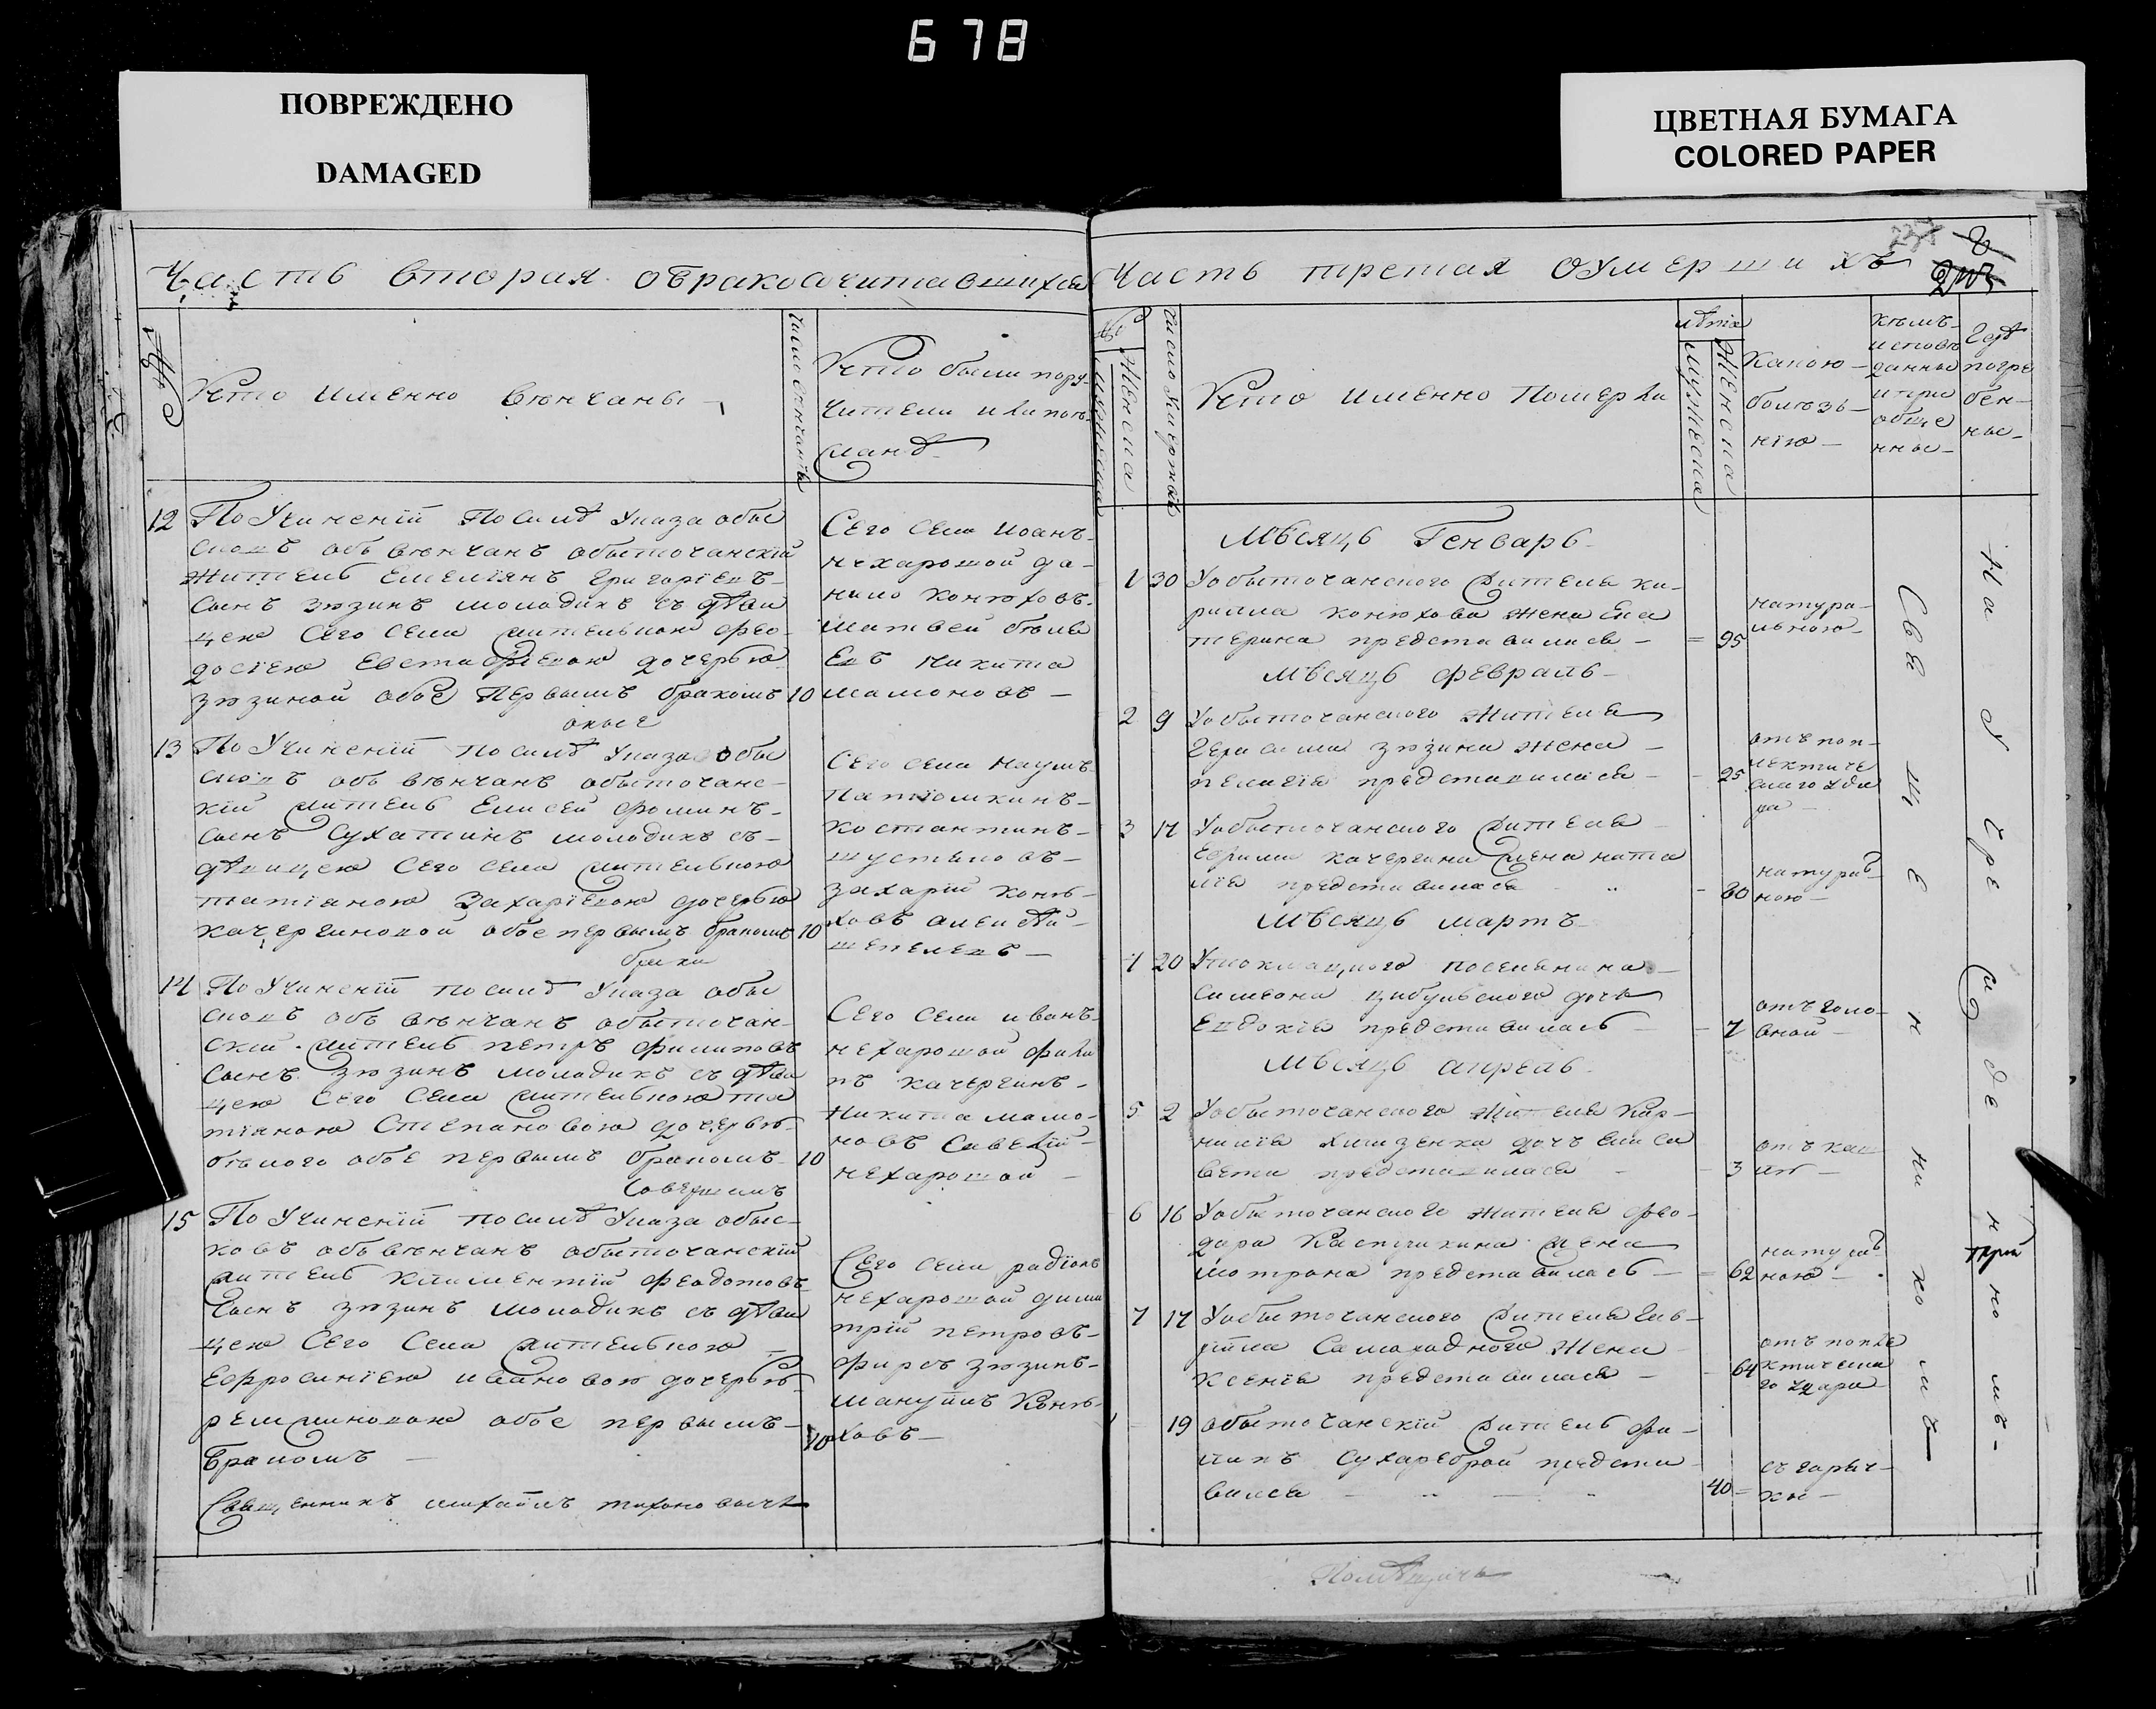 678
ПОВРЕЖДЕНО
DAMAGED
ЦВЕТНАЯ БУМАГА
COLORED PAPER
Часть вторая обракосочитавшихся
№
Кто именно вѣнчаны
Кто были пору-
чители или посѣ
12 По учиненіи посилѣ указа обы
объ вѣнчанъ обыточанскій
житель Емеліянъ Григоріевъ
сынъ зюзинъ молодикъ съ дѣви
цею сего села жителькою Фео-
досіею Евстафіевою дочерью
зюзиной обое первымъ бракомъ 10
Сего села Иоанъ
нехарошой да-
нило конюховъ
Матвей бѣлы
Никита
мамоновъ
13 По учиненіи посилѣ указа обы
объ вѣнчанъ обыточанс-
кій житель Елисей Фоминъ
сынъ Сухатинъ молодикъ съ
дѣвицею сего села жителькою
татіаною Захаріевою дочерью
качергиновой обое первымъ бракомъ 10
Сего села Наумъ
Патіомкинъ
Костантинъ
захарій коню-
ховъ алексѣй
шепелевъ
14 По учиненіи посилѣ указа обы
объ вѣнчанъ обыточан-
скій житель петръ филиповъ
сынъ зюзинъ молодикъ съ дѣви
цею сего села жителькою та
тіаною Степановою дочерью
бѣлого обое первымъ бракомъ 10
Сего села иванъ
нехарошой фили
пъ качергинъ
Никита мамо-
новъ Савелій
нехарошой
15 По учиненіи посилѣ указа обыс-
ковъ объвѣнчанъ обыточанскій
житель климентій феодотовъ
сынъ зюзинъ молодикъ съ дѣви
цею сего села жителькою
Ефросиніею ивановою дочерью
обое первымъ
бракомъ 10
Сего села радіонъ
нехарошой дими
трій петровъ
фирсъ зюзинъ
мануилъ коню-
ховъ
Священникъ михаилъ тихоновичъ
Часть третая о умершихъ
№
Мужеска
Женска
Кто именно померли
лѣта
Мужеска
Женска
Какою
болѣзь-
нію
кѣмъ
исповѣ
данны
и при
обще
нны
гдѣ
погре
бен-
ны
Мѣсяць Генварь
1 30 Уобыточанского жителя ки-
рилла конюхова жена Ека
терина представилась = 95
натура-
льною
Мѣсяць февраль
2 9 Уобыточанского жителя
Герасима зюзина жена
пелагія представилась 25
отъ поп-
лектиче
ского уда
ра
3 14 Уобыточанского жителя
Ефрима качергина жена ната
лія представилась 80
натураль
ною
Мѣсяць мартъ
4 20 поселянина
симеона цибульского дочь
Евдокія представилась 7
отъ голо-
вной
Мѣсяць апрель
5 2 Уобыточанского жителя кор-
нилія дочъ елиса
вета представилась 3
отъ каш
ля
6 16 Уобыточанского жителя фео-
дора жена
мотрона представилась 62
натураль
ною
7 17 Уобыточанского жителя гав-
ріила Самохадного жена
ксенія представилась 64
отъ попле
ктическа
го удара
19 обыточанскій житель фи-
липъ сухареброй предста
вился 40
съ гаряч-
ки
Священникомъ
На